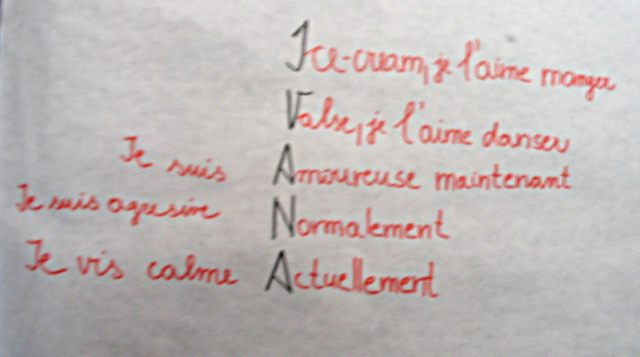 Ice-cream, je l'aime manger
Valse, je l'aime danser
Je suis Amoureuse maintenant
Je suis agresive Normalement
Je vis calme Actuellement